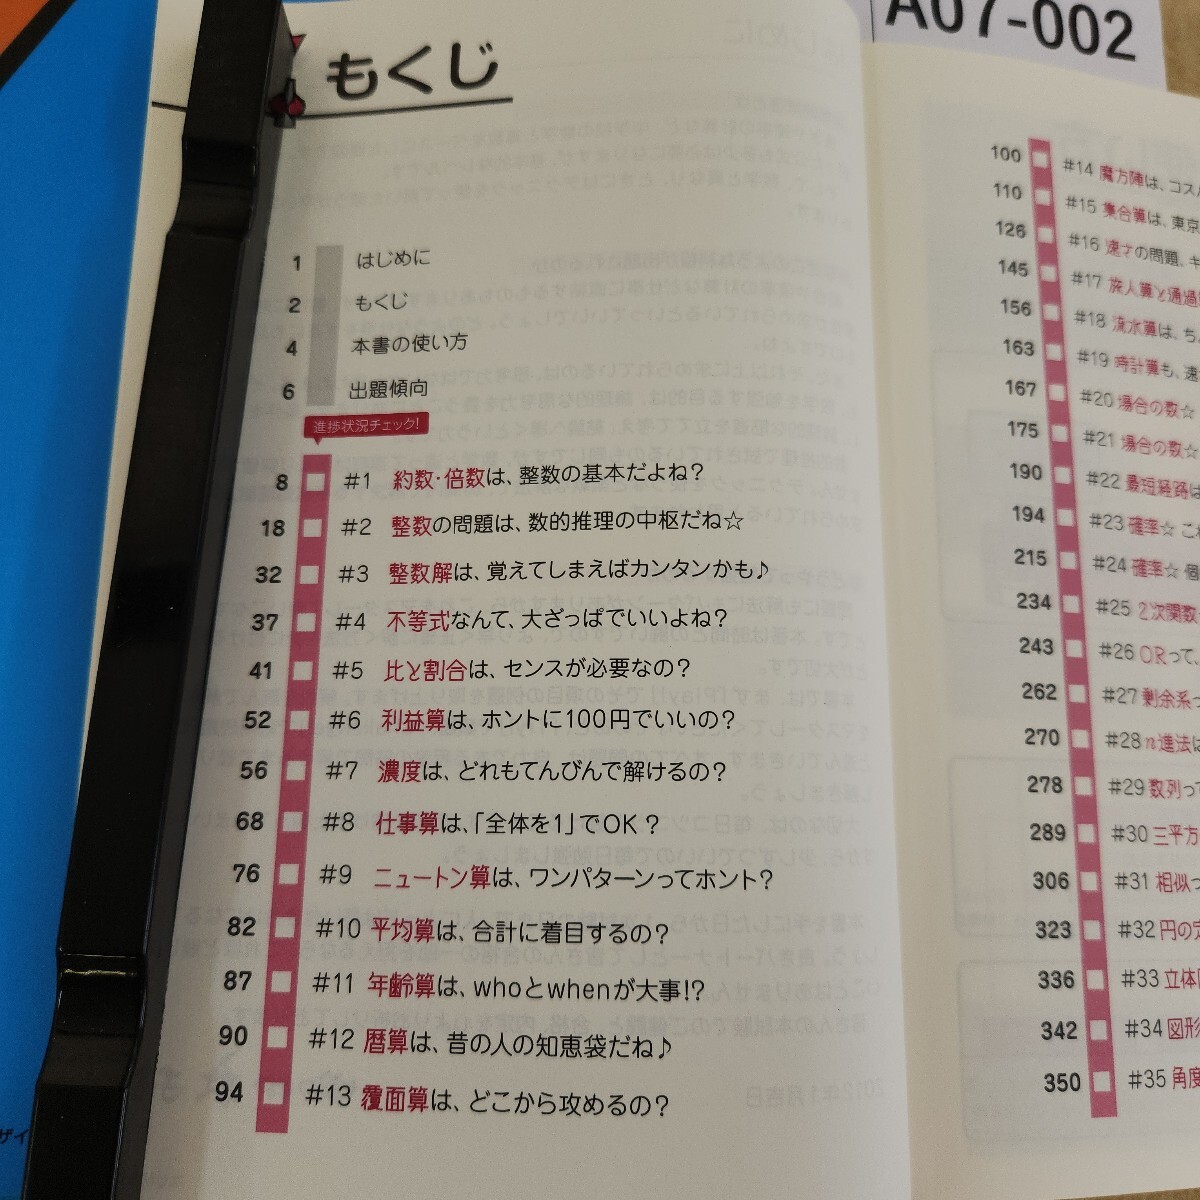 A07-002
もくじ
1 はじめに
2 もくじ
4 本書の使い方
6 出題傾向
進捗状況チェック!
8 #1 約数・倍数は、整数の基本だよね?
18 #2 整数の問題は、数的推理の中枢だね☆
32 #3 整数解は、覚えてしまえばカンタンかも♪
37 #4 不等式なんて、大ざっぱでいいよね?
41 #5 比と割合は、センスが必要なの?
52 #6 利益算は、ホントに100円でいいの?
56 #7 濃度は、どれもてんびんで解けるの?
68 #8 仕事算は、「全体を1」でOK?
76 #9 ニュートン算は、ワンパターンってホント?
82 #10 平均算は、合計に着目するの?
87 #11 年齢算は、whoとwhenが大事!?
90 #12 暦算は、昔の人の知恵袋だね♪
94 #13 覆面算は、どこから攻めるの?
100 #14 魔方陣は、コス
110 #15 集合算は、東京
126 #16 速さの問題、キ
145 #17 旅人算と通過
156 #18 流水算は、ち
163 #19 時計算も、速
167 #20 場合の数☆
175 #21 場合の数☆
190 #22 最短経路は
194 #23 確率☆ これ
215 #24 確率☆ 個
234 #25 2次関数
243 #26 ORって、
262 #27 剰余系っ
270 #28 n進法は
278 #29 数列って
289 #30 三平方
306 #31 相似っ
323 #32 円の定
336 #33 立体
342 #34 図形
350 #35 角度
ザイ